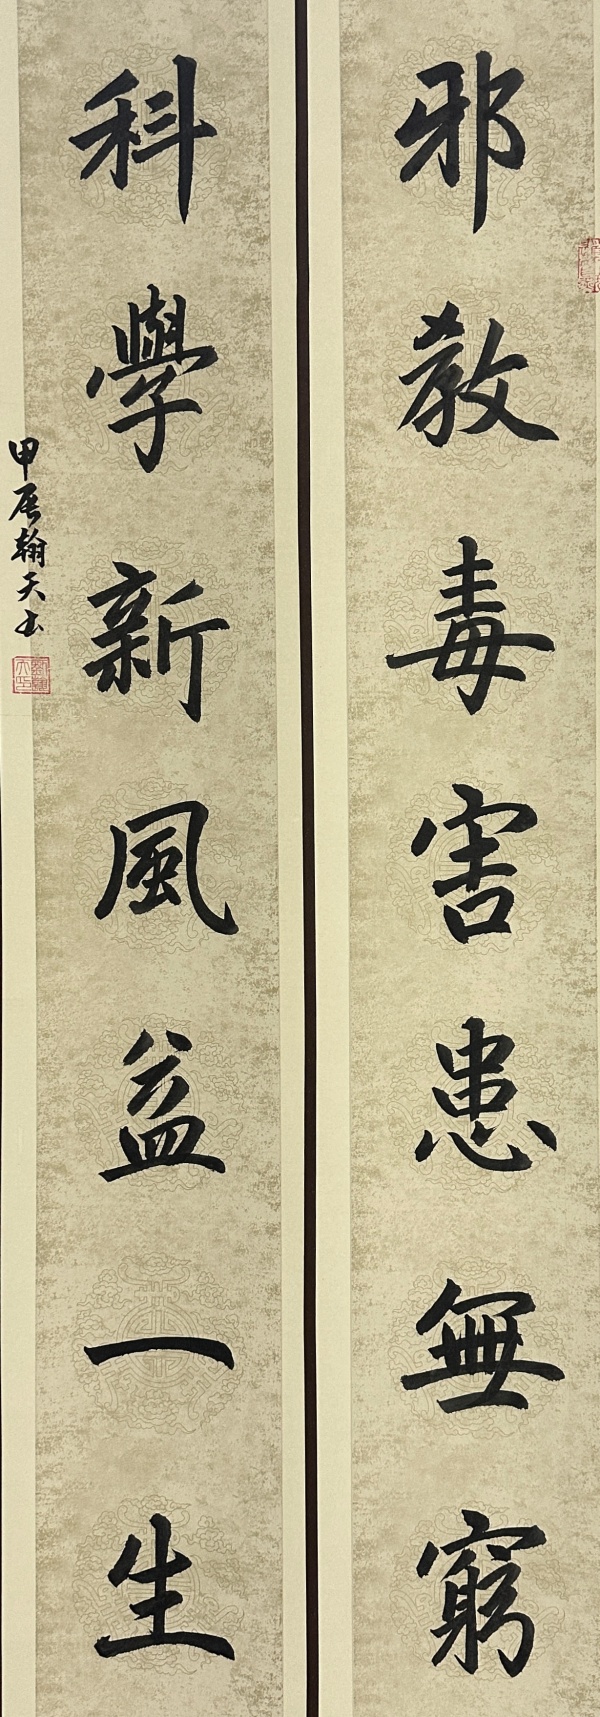 邪教毒害患無窮
科學新風益一生
甲辰翰天书